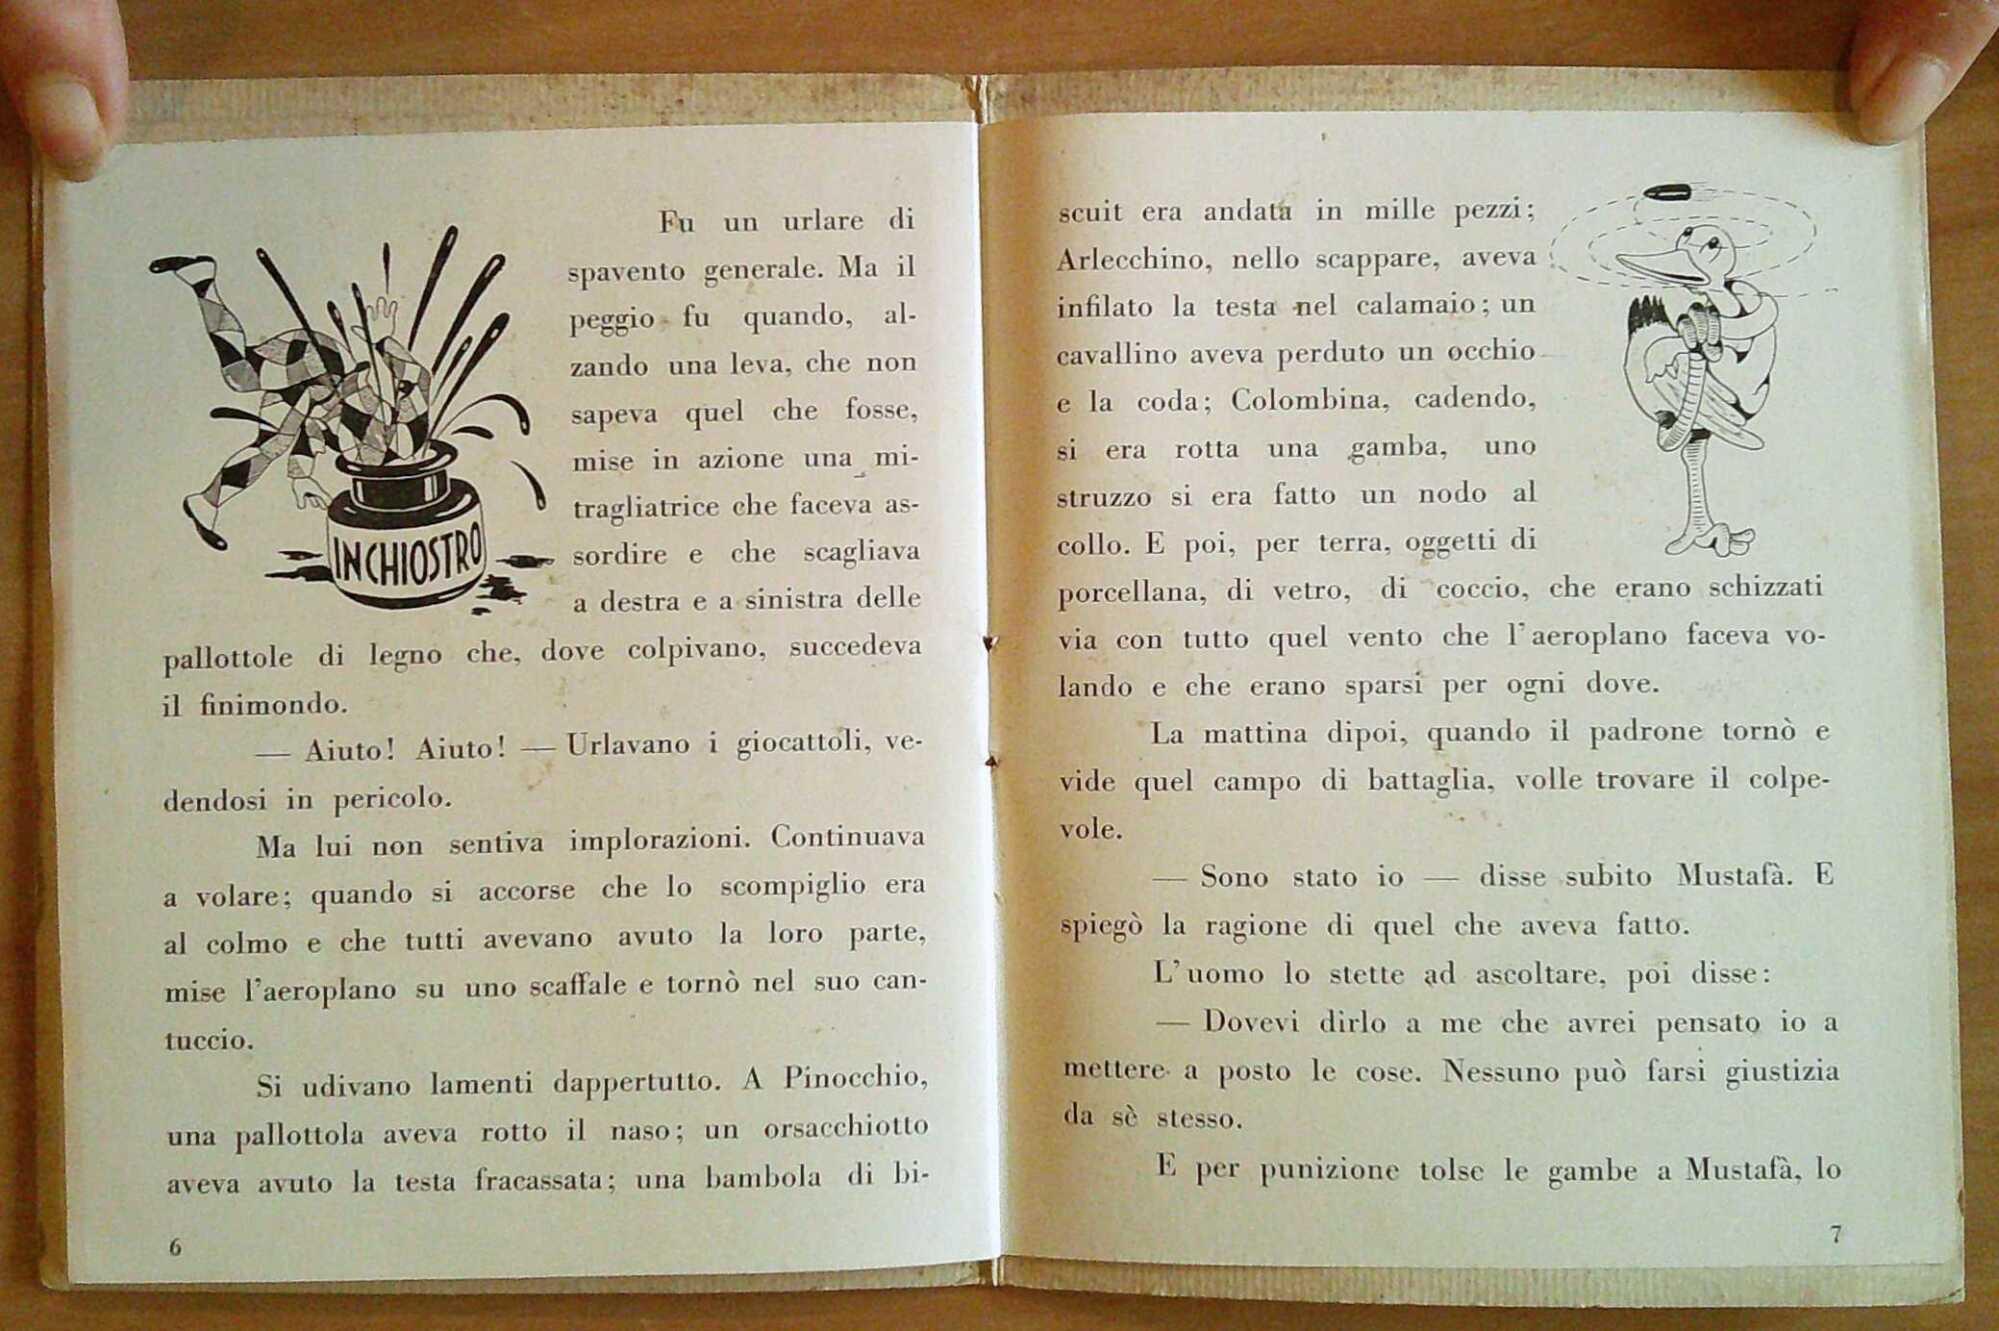 Fu un urlare di
spavento generale. Ma il
peggio fu quando, al-
zando una leva, che non
sapeva quel che fosse,
mise in azione una mi-
tragliatrice che faceva as-
sordire e che scagliava
a destra e a sinistra delle
pallottole di legno che, dove colpivano, succedeva
il finimondo.
— Aiuto! Aiuto! — Urlavano i giocattoli, ve-
dendosi in pericolo.
Ma lui non sentiva implorazioni. Continuava
a volare; quando si accorse che lo scompiglio era
al colmo e che tutti avevano avuto la loro parte,
mise l'aeroplano su uno scaffale e tornò nel suo can-
tuccio.
Si udivano lamenti dappertutto. A Pinocchio,
una pallottola aveva rotto il naso; un orsacchiotto
aveva avuto la testa fracassata; una bambola di bi-
6
INCHIOSTRO
scuit era andata in mille pezzi;
Arlecchino, nello scappare, aveva
infilato la testa nel calamaio; un
cavallino aveva perduto un occhio
e la coda; Colombina, cadendo,
si era rotta una gamba, uno
struzzo si era fatto un nodo al
collo. E poi, per terra, oggetti di
porcellana, di vetro, di coccio, che erano schizzati
via con tutto quel vento che l'aeroplano faceva vo-
lando e che erano sparsi per ogni dove.
La mattina dipoi, quando il padrone tornò e
vide quel campo di battaglia, volle trovare il colpe-
vole.
— Sono stato io — disse subito Mustafà. E
spiegò la ragione di quel che aveva fatto.
L'uomo lo stette ad ascoltare, poi disse:
— Dovevi dirlo a me che avrei pensato io a
mettere a posto le cose. Nessuno può farsi giustizia
da sè stesso.
E per punizione tolse le gambe a Mustafà, lo
7